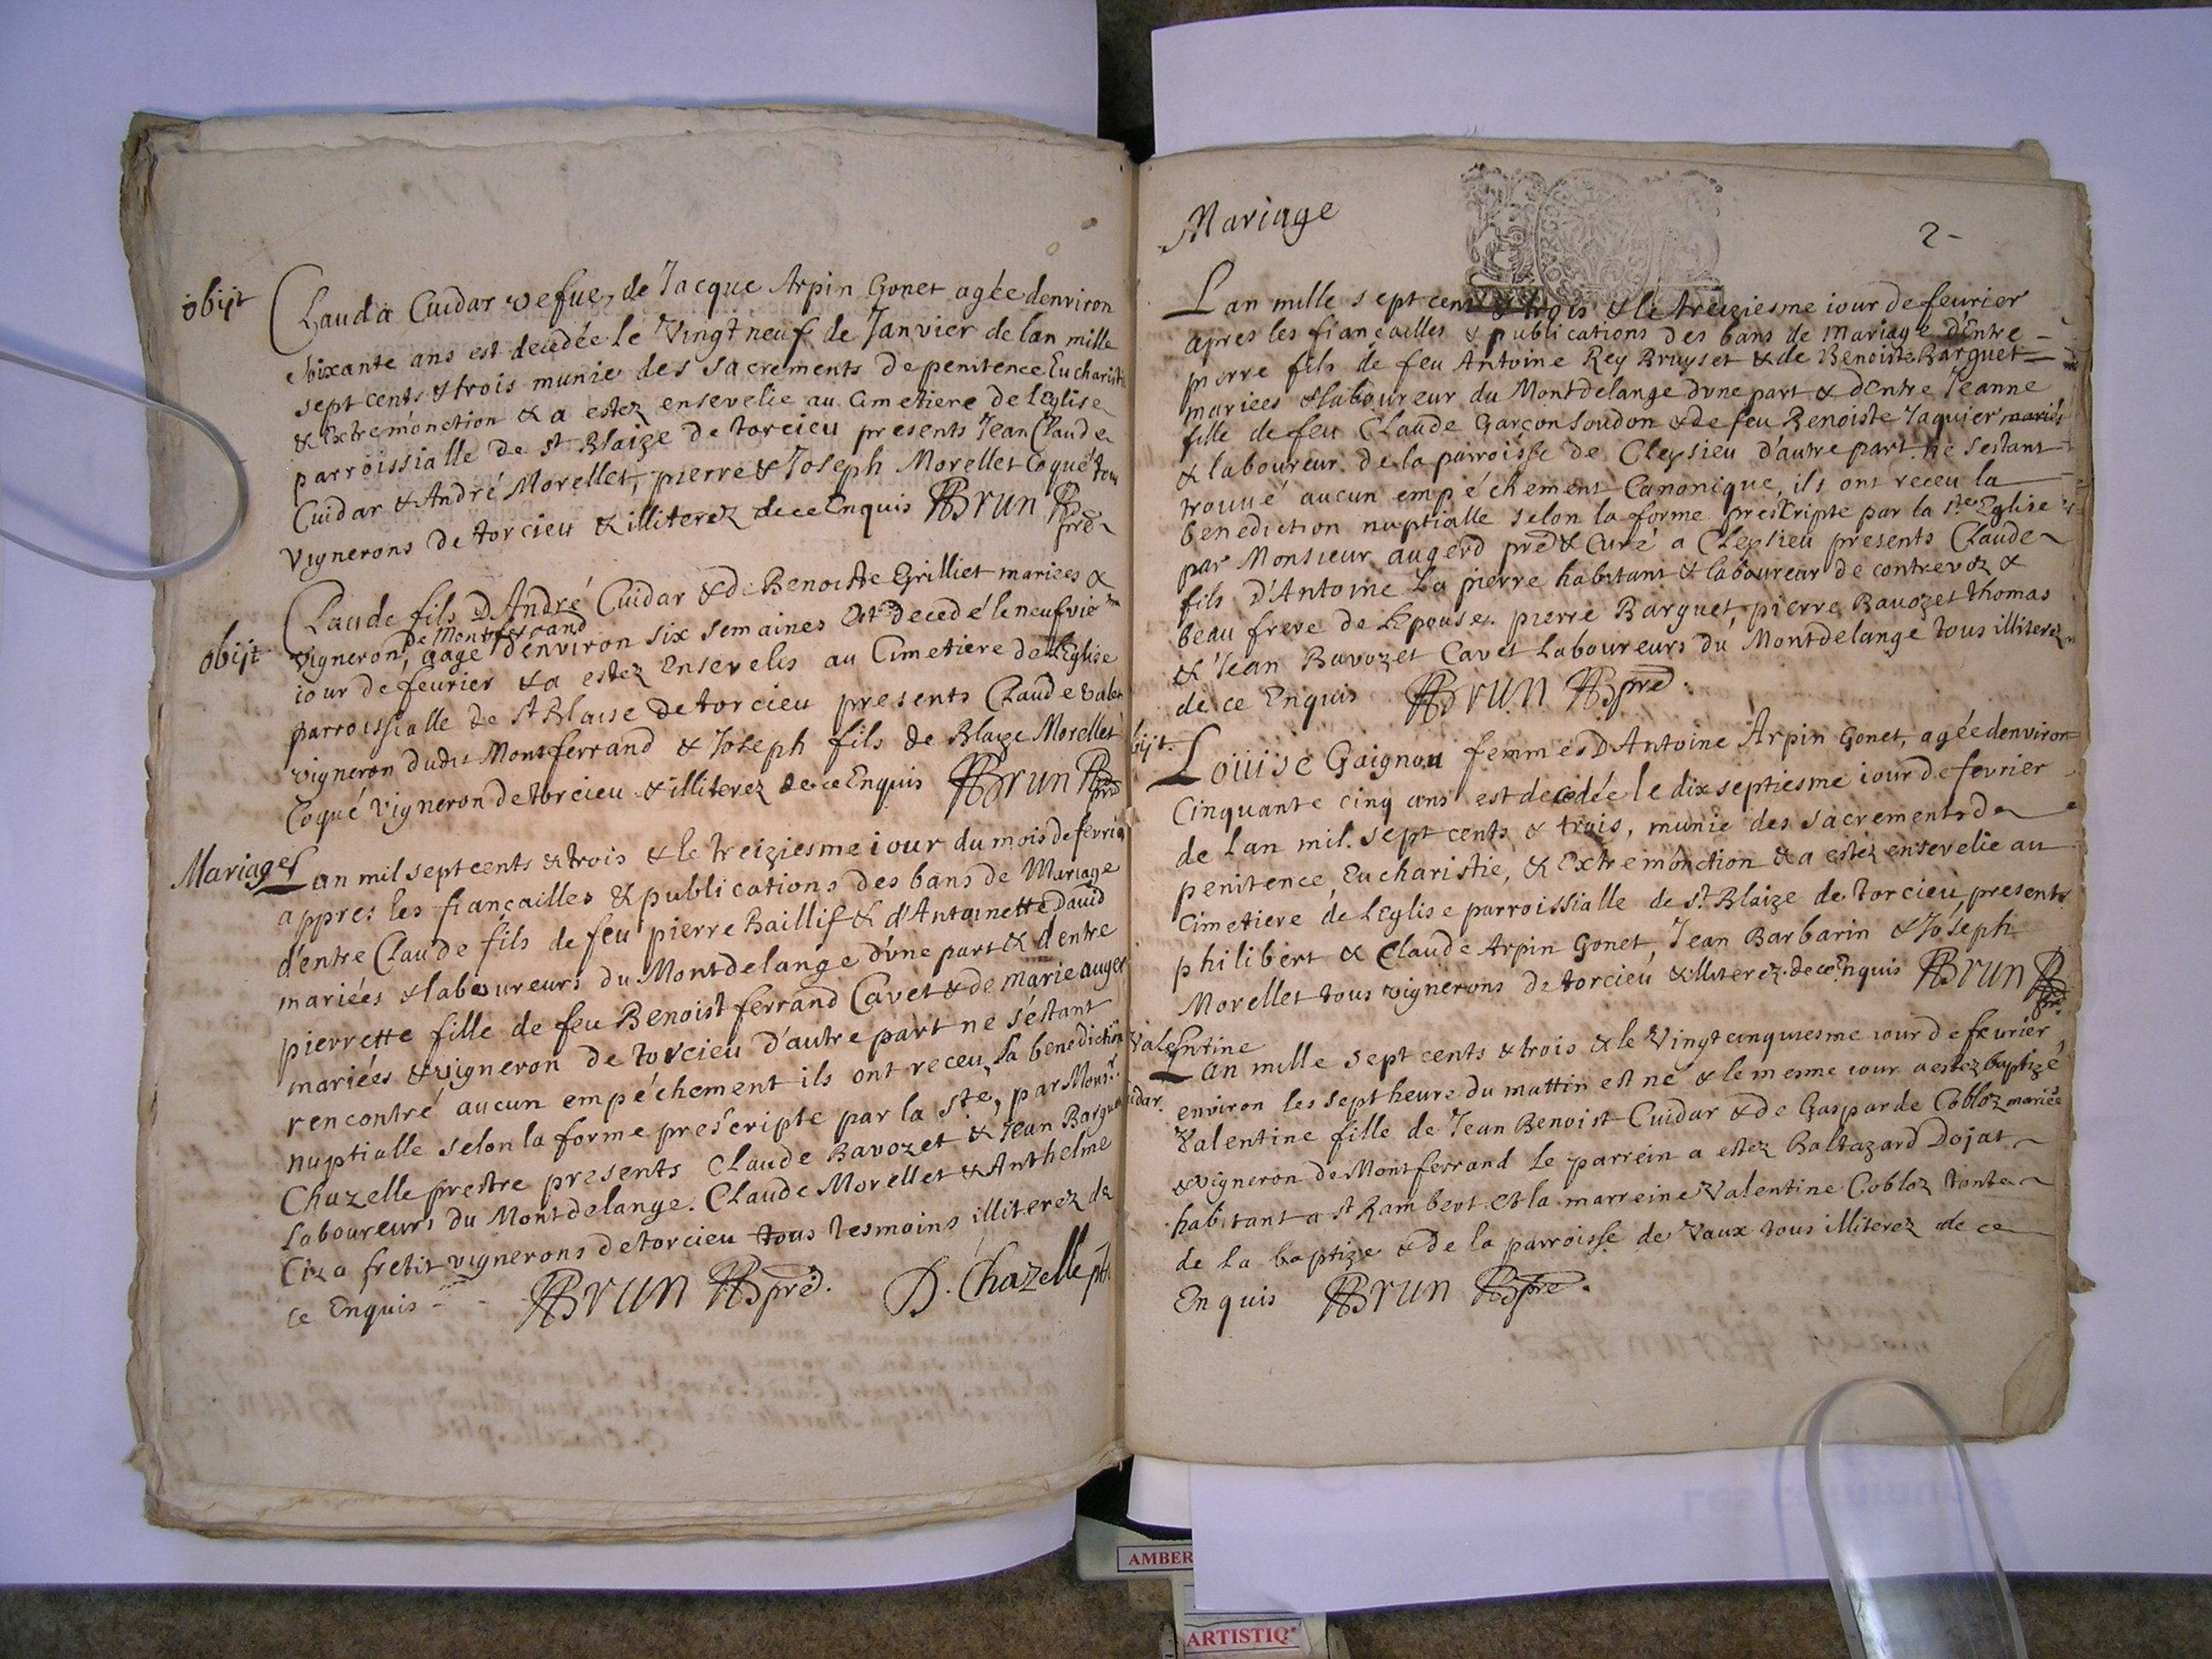 obijt
Clauda Cuidar vefue, de Jacque Arpin Gonet agée denviron
soixante ans est decedée le Vingt neuf de Janvier de lan mille
sept cents & trois munie des Sacrements de penitence Eucharisti
& Extremónction & a estez ensevelie au Cimetiere de leglise
parroissialle de st Blaize de torcieu presents Jean Claude
Cuidar & André Morellet, pierre & Joseph Morellet Coqué tous
vignerons de torcieu & illiterez de ce Enquis Brun
pre
obijt
Claude fils D'André Cuidar & de Benoiste Grilliet mariees &
de Montferrand
vigneron, aagé denviron six semaines Est decedé le neufvie
iour de feurier & a estez Ensevelis au Cimetiere de lEglise
parroissialle de st Blaise de torcieu presents Claude valen
vigneron dudit Montferrand & Joseph fils de Blaize Morellet
Coqué vigneron de torcieu & illiterez de ce Enquis Brun pre
Mariage
Lan mil sept cents & trois & le treiziesme iour du mois de fevrie
appres les fiançailles & publications des bans de Mariage
d'entre Claude fils de feu pierre Baillif & d'Antoinette David
mariées & laboureurs du Montdelange d'vne part & d'entre
pierrette fille de feu Benoist ferrand Cavet & de marie auger
mariées & vigneron de torcieu d'autre part ne s'éstant
rencontré aucun empéchement ils ont receu la benediction
nuptialle selon la forme prescripte par la ste, par Monsr.
Chazelle prestre presents Claude Bavozet & Jean Barguet
Laboureurs du Montdelange. Claude Morellet & Anthelme
Ciza fretit vignerons de torcieu tous tesmoins illiterez de
ce Enquis - - Brun pre. D. Chazelle ptre
Mariage
2-
Lan mille sept cens & trois & le treiziesme iour de feurier
apres les fiançailles & publications des bans de mariage d'Entre -
pierre fils de feu Antoine Rey Bruyset & de Benoiste Barguet
mariees & laboureur du Montdelange dvne part & d'Entre Jeanne
fille de feu Claude Garçon Soudon & de feu Benoiste Jaquier mariés
& laboureur de la parroisse de Cleysieu d'autre part ne sestant
trouué aucun empéchement Canonique, ils ont receu la
benediction nuptialle selon la forme prescripte par la ste Eglise
par Monsieur augerd pre & Curé a Cleysieu presents Claude
fils d'Antoine La pierre habitant & laboureur de contrevoz &
beau frere de l'Epouse. pierre Barguet, pierre Bavozet thomas
& Jean Bavozet Cavet Laboureurs du Montdelange tous illiterez
de ce Enquis Brun pre.
bijt.
Loüise Gaignou femme D'Antoine Arpin Gonet, agée denviron
Cinquante cinq ans est decedée le dix septiesme iour de fevrier
de lan mil. sept cents & trois, munie des sacrements de
penitence, Eucharistie, & Extremónction & a estez ensevelie au
Cimetiere de leglise parroissialle de st Blaize de torcieu, presents
philibert & Claude Arpin Gonet, Jean Barbarin & Joseph
Morellet tous vignerons de torcieu & illiterez de ce Enquis Brun
pre.
Valentine
uidar.
Lan mille sept cents & trois & le Vingt cinquiesme iour de feurier
environ les sept heure du mattin est né & le mesme iour a estez baptizé
Valentine fille de Jean Benoist Cuidar & de Gasparde Cobloz mariés
& vigneron de Montferrand Le parrein a estez Baltazard Dojat
habitant a st Rambert et la marreine Valentine Cobloz tante
de la baptize & de la parroisse de Vaux tous illiterez de ce
Enquis Brun pre.
AMBER
ARTISTIQ